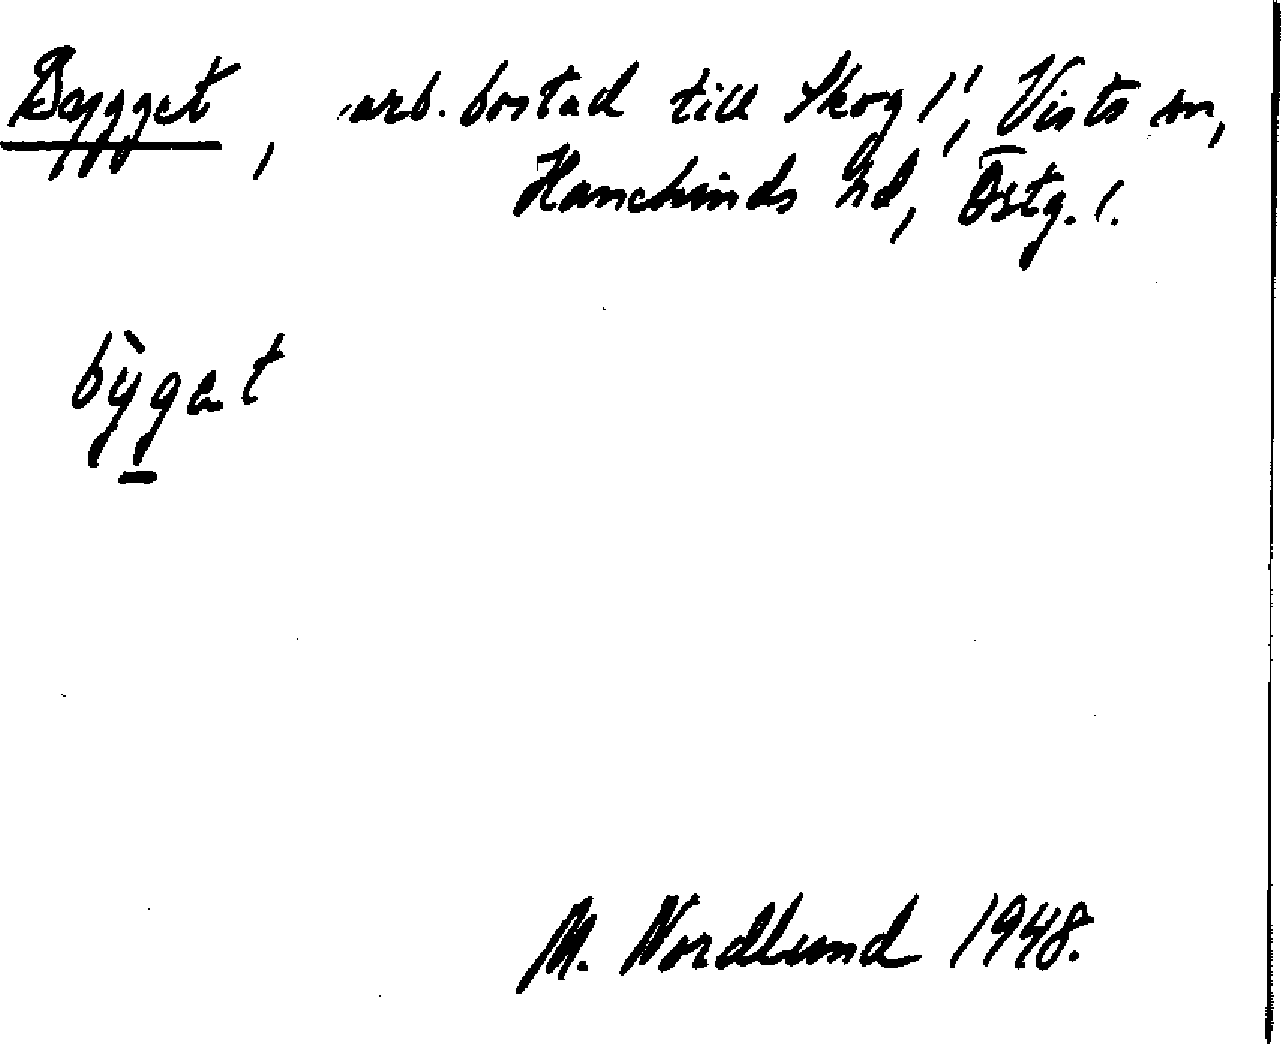 Bygget, arb. bostad till Skog 1¹, Vists sn,
Hanekinds hd, Östg. l.
by̍gat
M. Nordlund 1948.